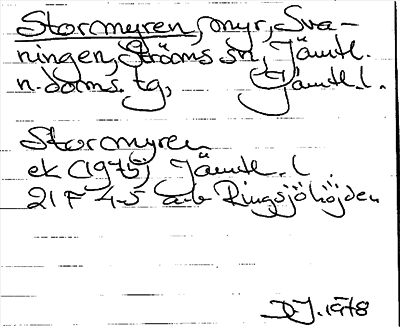 Stormyren, myr, Sva-
ningen, Ströms sn, Jämtl.
n. doms. tg, Jämtl. l.
Stormyren
ek (1975) Jämtl. l.
21 F 4-5 a-b Ringsjöhöjden
DJ. 1978